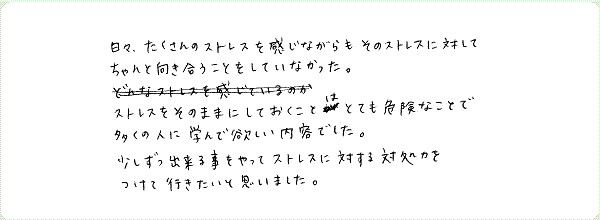 日々、たくさんのストレスを感じながらもそのストレスに対して
ちゃんと向き合うことをしていなかった。
どんなストレスを感じているのか
ストレスをそのままにしておくことはとても危険なことで
多くの人に学んで欲しい内容でした。
少しずつ出来る事をやってストレスに対する対処力を
つけて行きたいと思いました。